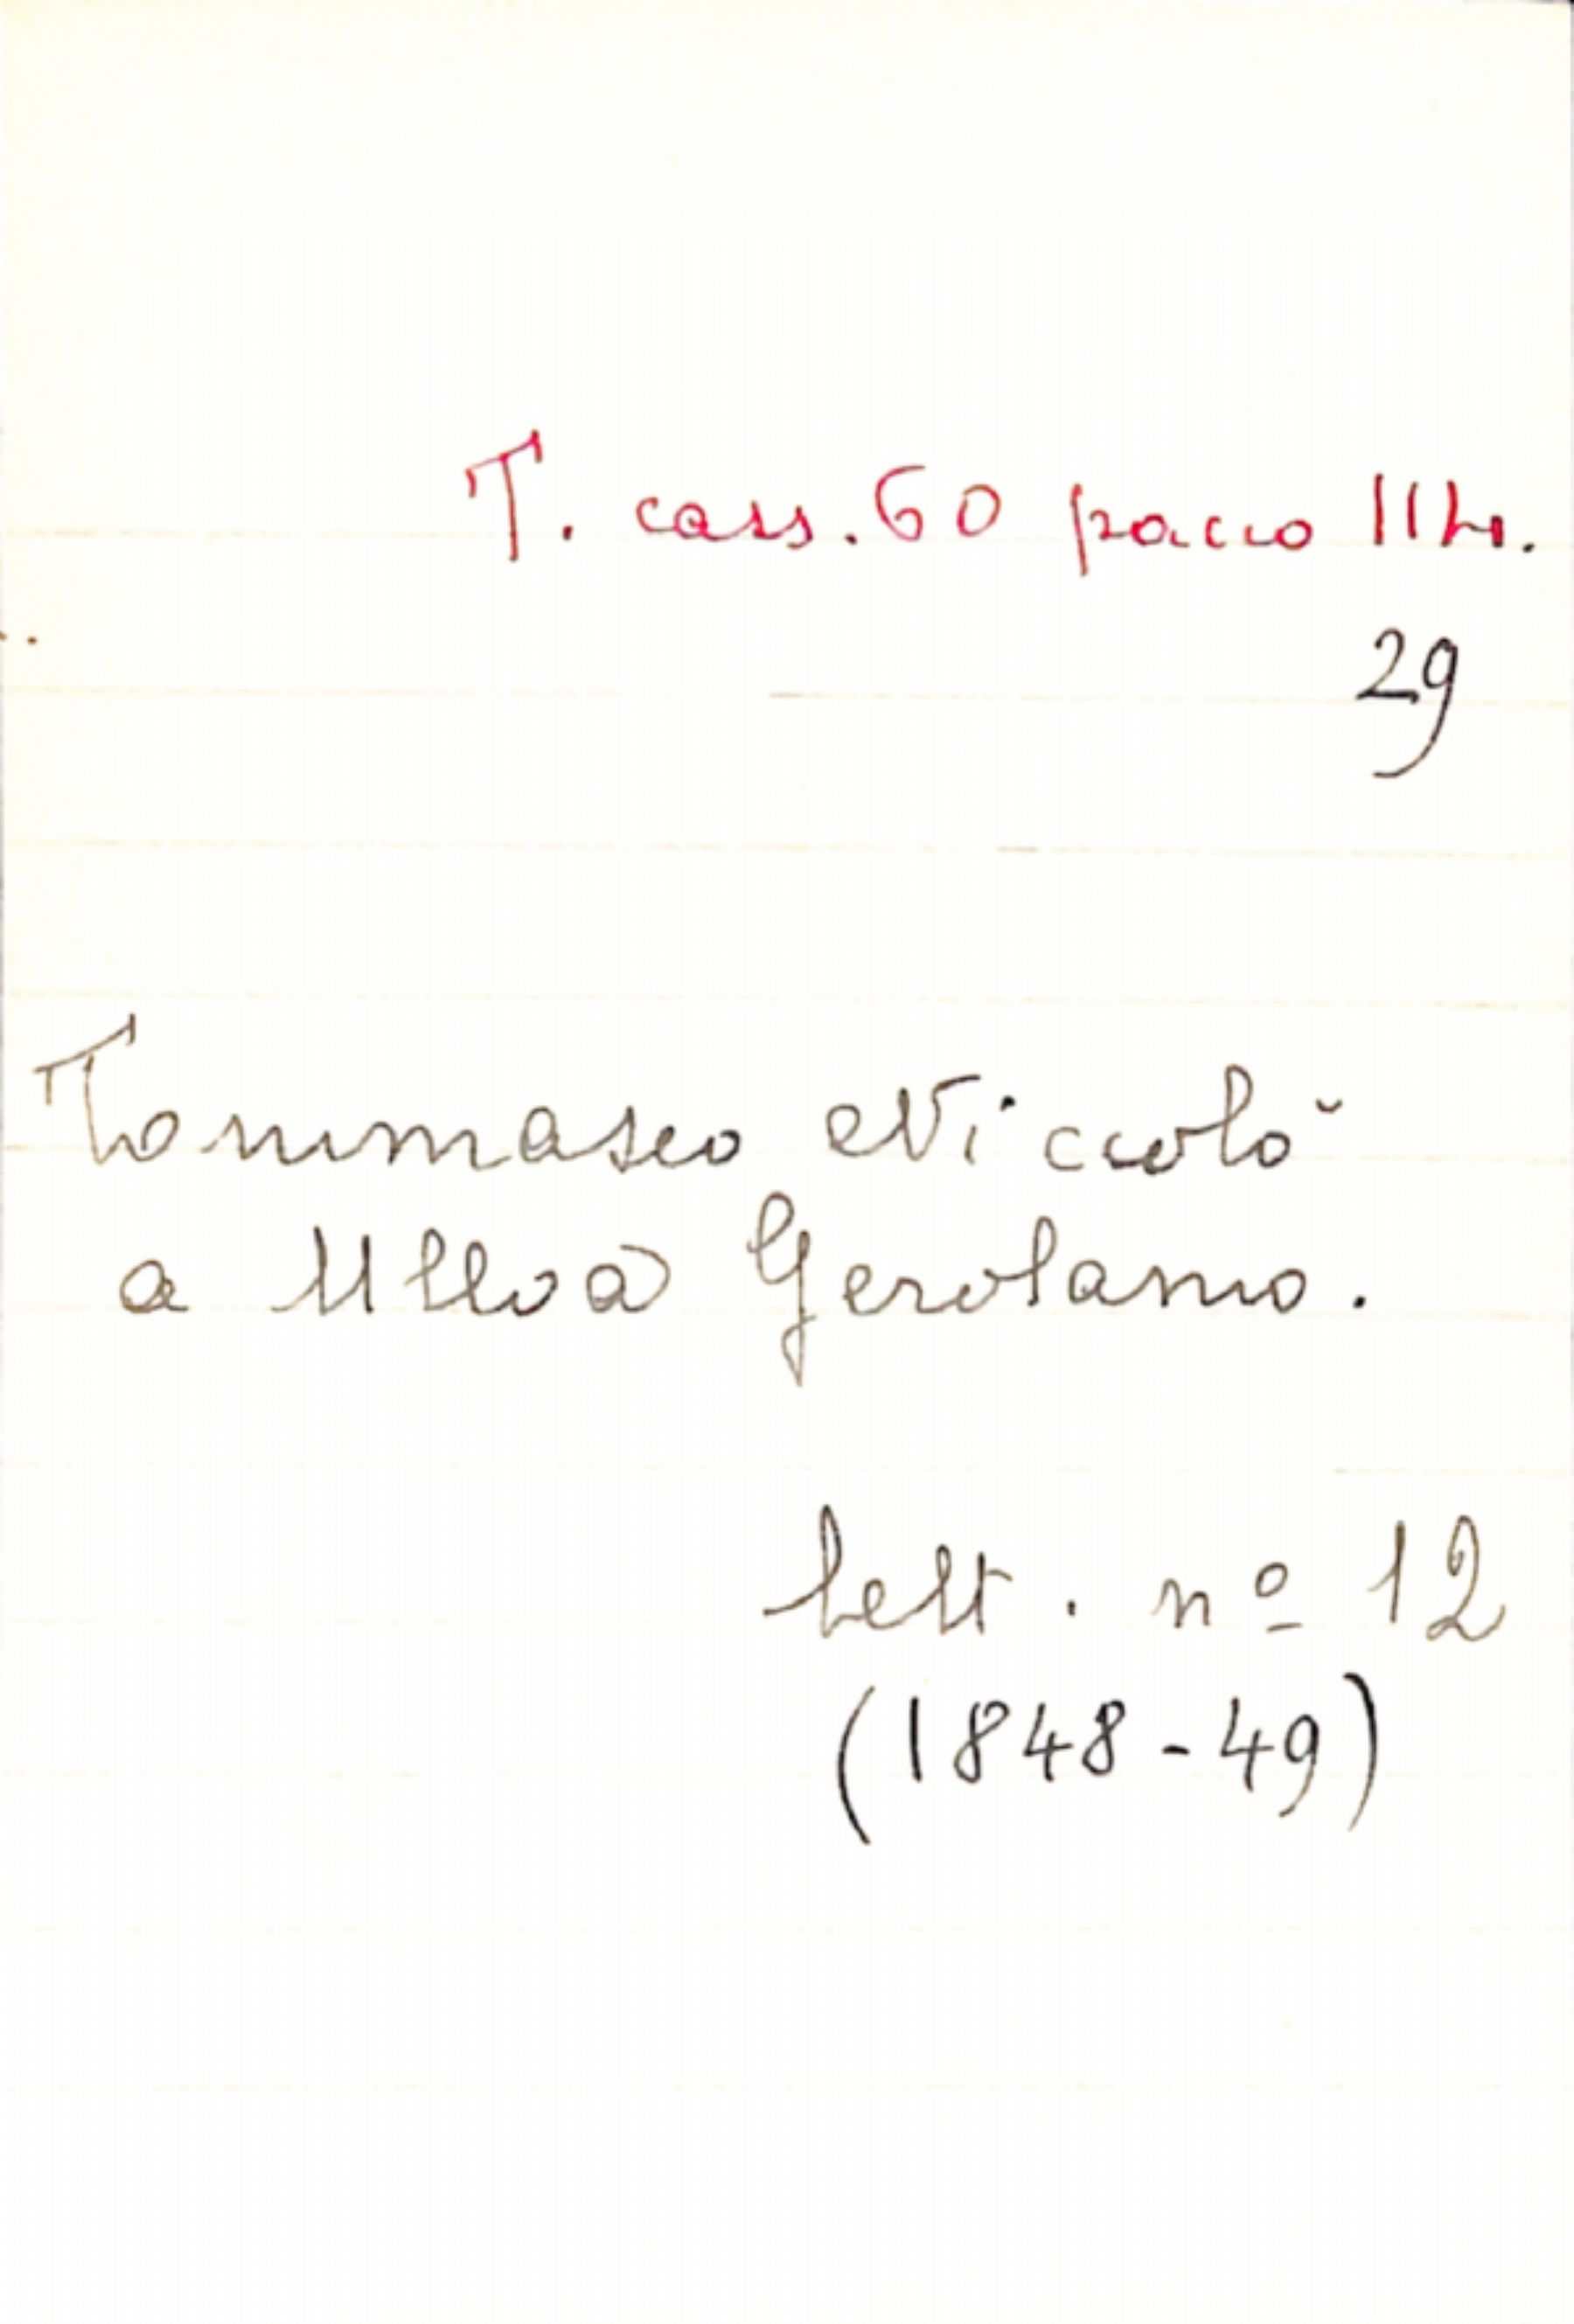 T. cass. 60 pacco II
29
Tommaseo Niccolò
a Ulloa Gerolamo.
lett. nº 12
(1848-49)